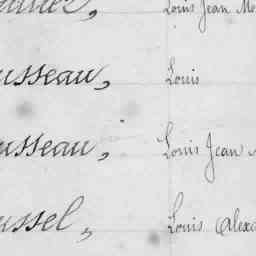 Louis Jean
usseau, Louis
usseau, Louis Jean
ussel, Louis